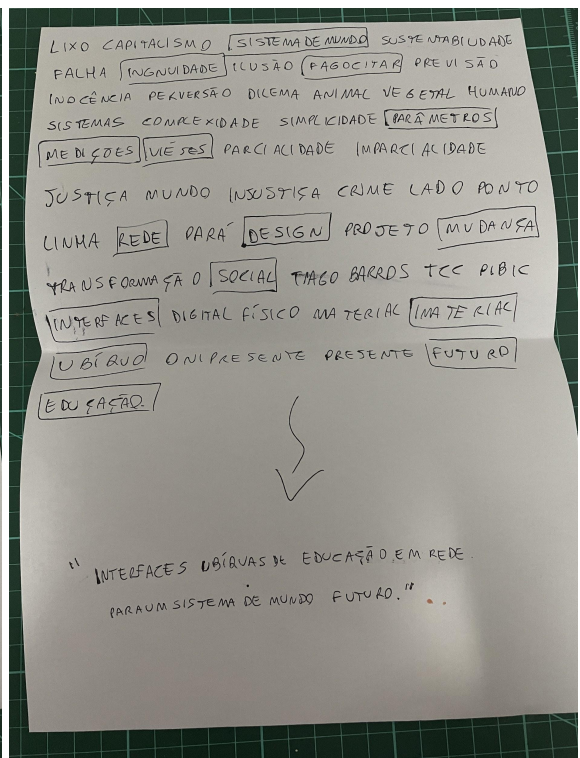 LIXO CAPITALISMO SISTEMA DE MUNDO SUSTENTABILIDADE
FALHA INGNUIDADE ILUSÃO FAGOCITAR PREVISÃO
INOCÊNCIA PERVERSÃO DILEMA ANIMAL VEGETAL HUMANO
SISTEMAS COMPLEXIDADE SIMPLICIDADE PARÂMETROS
MEDIÇÕES VIÉSES PARCIALIDADE IMPARCIALIDADE
JUSTIÇA MUNDO INJUSTIÇA CRIME LADO PONTO
LINHA REDE PARÁ DESIGN PROJETO MUDANÇA
TRANSFORMAÇÃO SOCIAL TIAGO BARROS TCC PIBIC
INTERFACES DIGITAL FÍSICO MATERIAL IMATERIAL
UBÍQUO ONIPRESENTE PRESENTE FUTURO
EDUCAÇÃO.
"INTERFACES UBÍQUAS DE EDUCAÇÃO EM REDE
PARA UM SISTEMA DE MUNDO FUTURO."